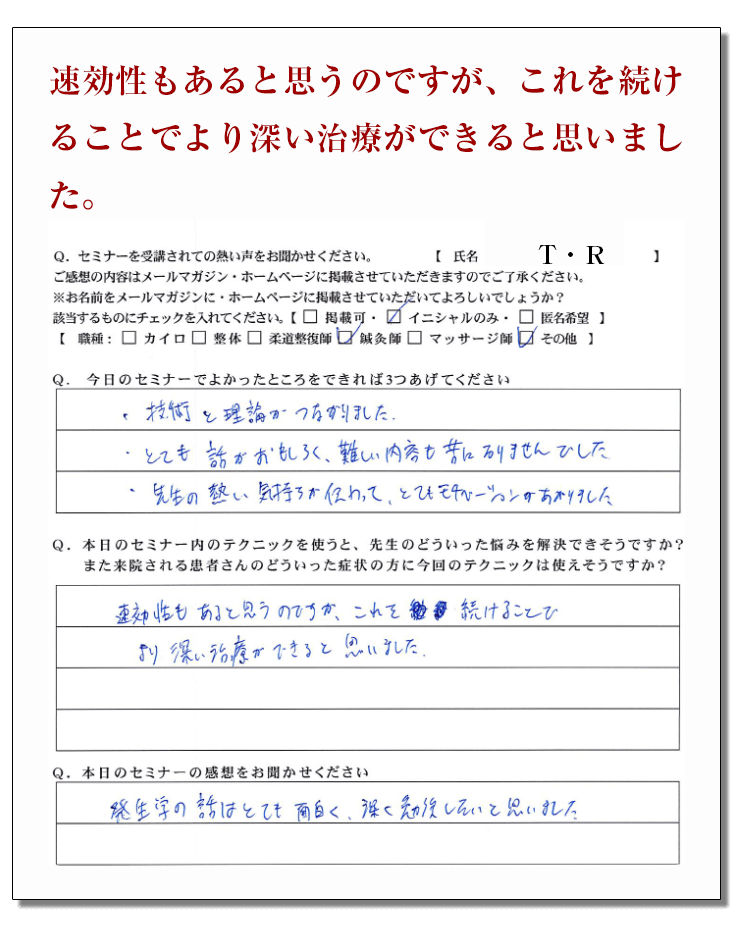 速効性もあると思うのですが、これを続け
ることでより深い治療ができると思いまし
た。
Q．セミナーを受講されての熱い声をお聞かせください。 【 氏名 T・R 】
ご感想の内容はメールマガジン・ホームページに掲載させていただきますのでご了承ください。
※お名前をメールマガジンに・ホームページに掲載させていただいてよろしいでしょうか？
該当するものにチェックを入れてください。【 □ 掲載可・ ☑ イニシャルのみ・ □ 匿名希望 】
【 職種：□ カイロ □ 整体 □ 柔道整復師 ☑ 鍼灸師 □ マッサージ師 ☑ その他 】
Q． 今日のセミナーでよかったところをできれば3つあげてください
・ 技術と理論がつながりました．
・ とても 話がおもしろく、難しい内容も苦になりませんでした
・ 先生の熱い気持ちが伝わって、とてもモチベーションがあがりました
Q．本日のセミナー内のテクニックを使うと、先生のどういった悩みを解決できそうですか？
また来院される患者さんのどういった症状の方に今回のテクニックは使えそうですか？
速効性もあると思うのですが、これを 続けることで
より深い治療ができると思いました．
Q．本日のセミナーの感想をお聞かせください
発生学の話はとても面白く、深く勉強したいと思いました